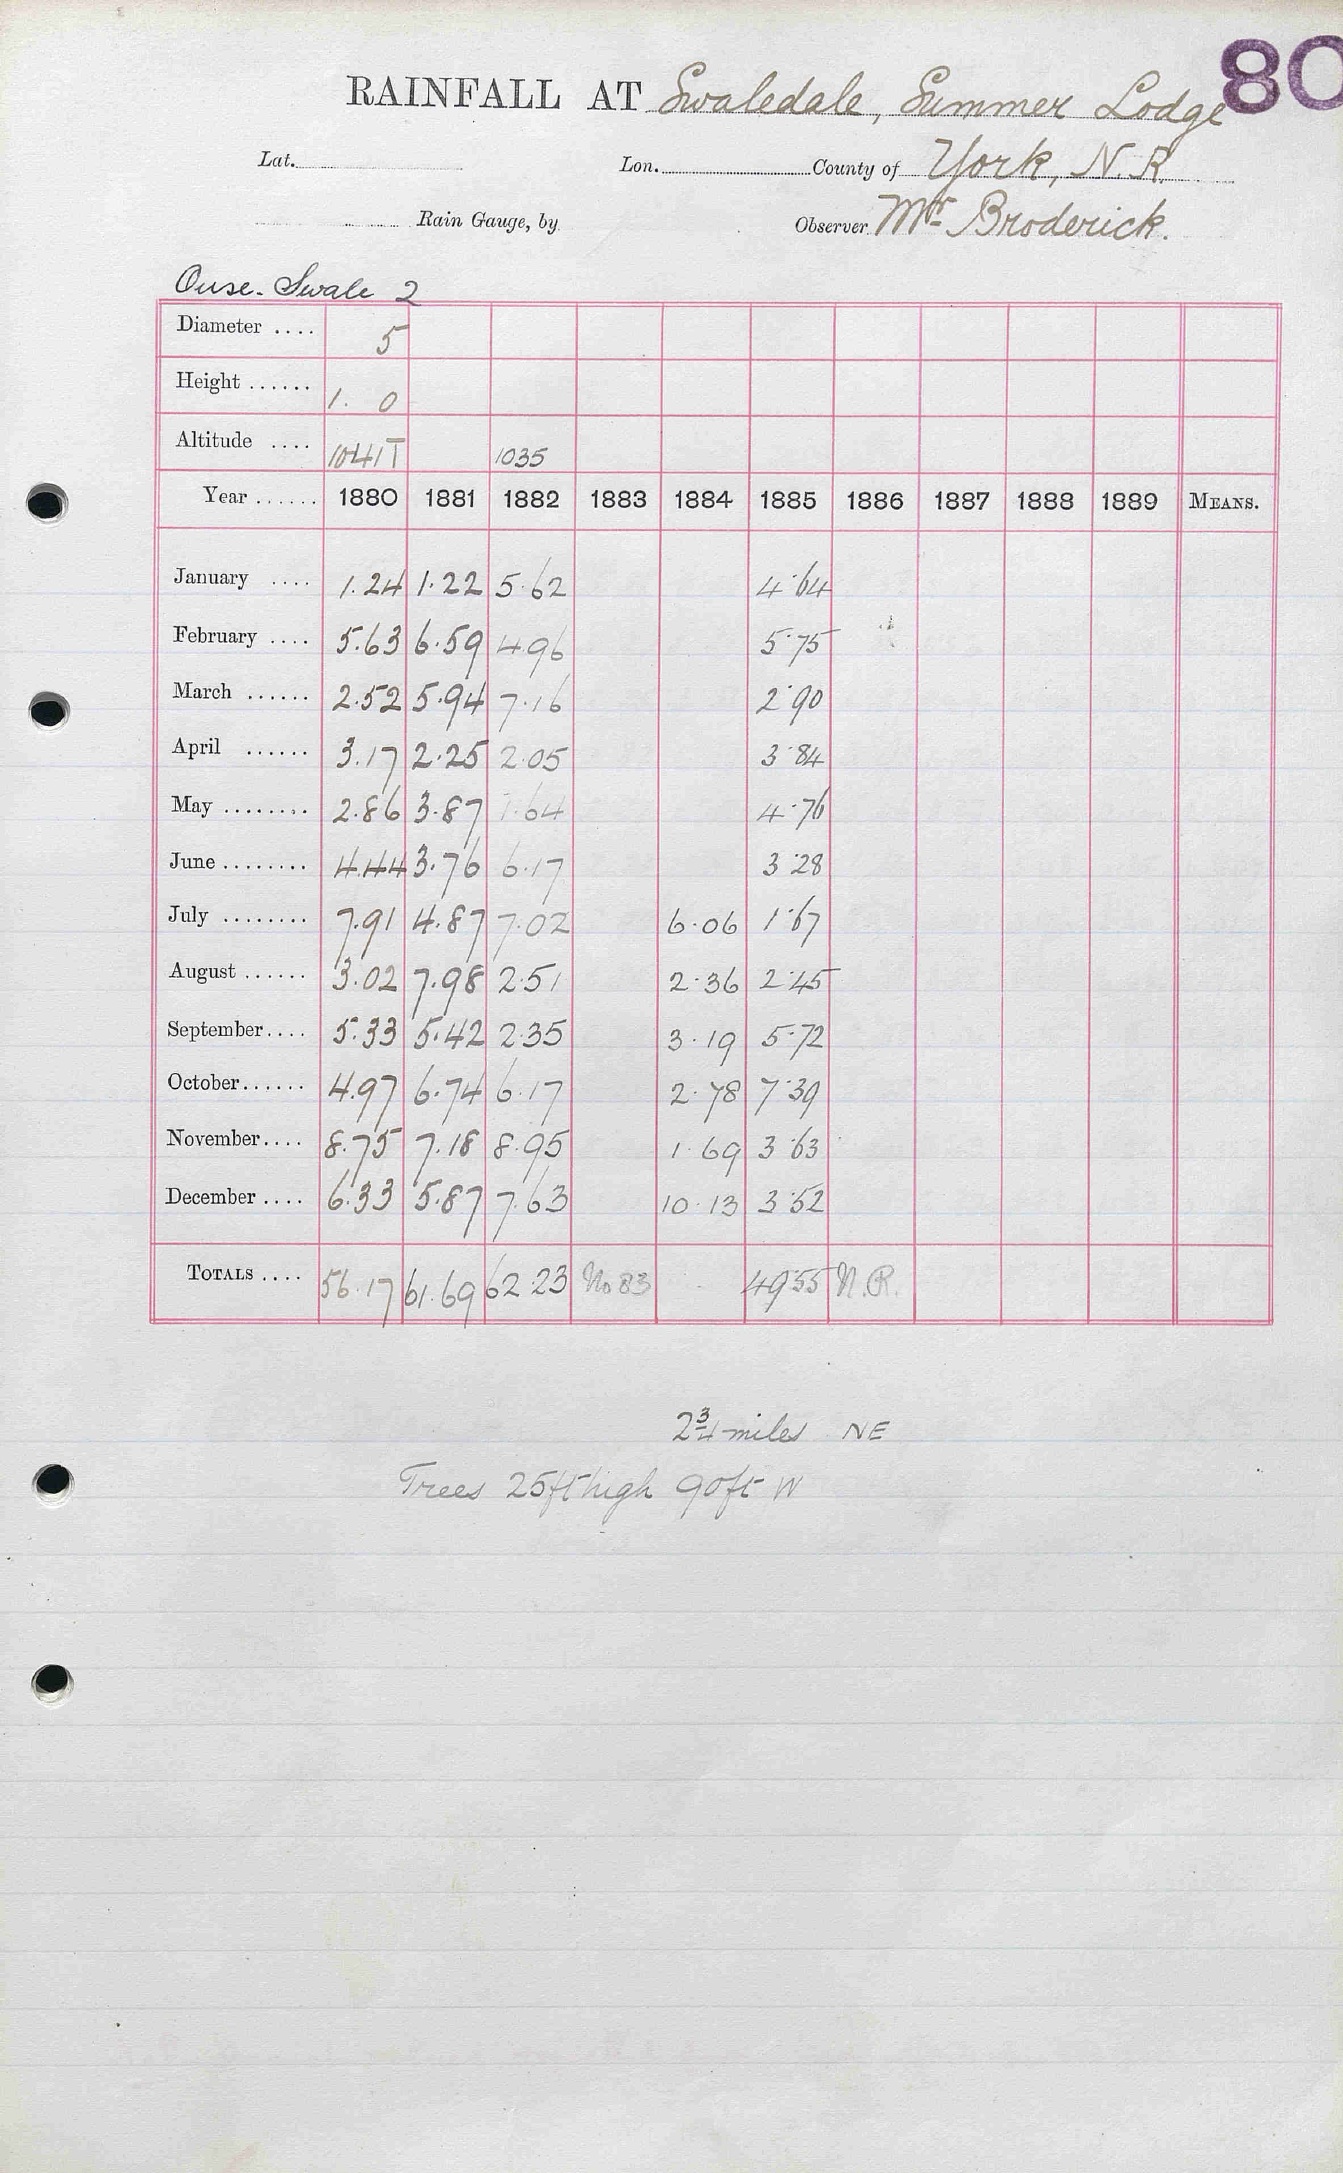 80
RAINFALL AT Swaledale, Summer Lodge
Lat. Lon. County of York, N.R.
Rain Gauge, by Observer Mr Broderick.
Ouse. Swale 2
Diameter .... 5
Height ...... 1. 0
Altitude .... 1041T 1035
Year ...... 1880 1881 1882 1883 1884 1885 1886 1887 1888 1889 MEANS.
January .... 1.24 1.22 5.62 4.64
February .... 5.63 6.59 4.96 5.75
March ...... 2.52 5.94 7.16 2.90
April ...... 3.17 2.25 2.05 3.84
May ........ 2.86 3.87 1.64 4.76
June ........ 4.44 3.76 6.17 3.28
July ........ 7.91 4.87 7.02 6.06 1.67
August ...... 3.02 7.98 2.51 2.36 2.45
September .... 5.33 5.42 2.35 3.19 5.72
October ...... 4.97 6.74 6.17 2.78 7.39
November .... 8.75 7.18 8.95 1.69 3.63
December .... 6.33 5.87 7.63 10.13 3.52
TOTALS .... 56.17 61.69 62.23 No 83 49.55 N.R.
2 3/4 miles NE
Trees 25ft high 90ft W